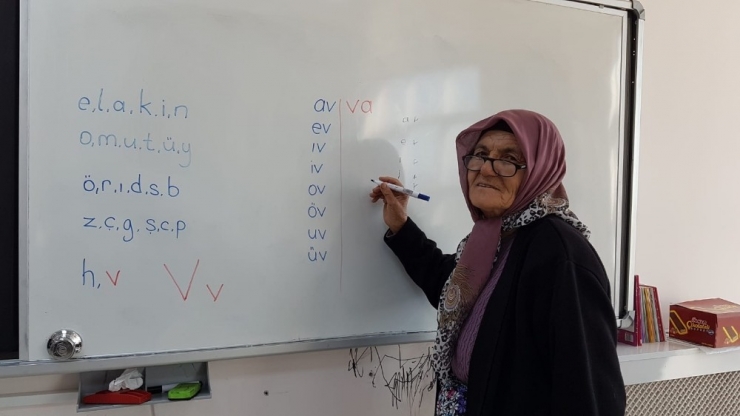 e,l,a,k,i,n
o,m,u,t,ü,y
ö,r,ı,d,s,b
z,ç,g,ş,c,p
h,v V v
av va
ev
ıv
iv
ov
öv
uv
üv
av